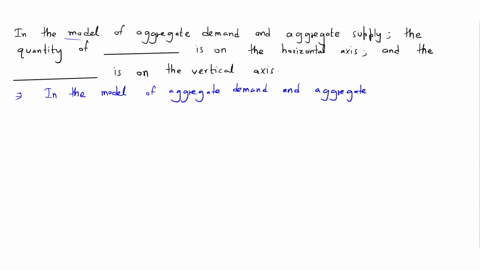 In the model of aggregate demand and aggregate supply; the
quantity of __________ is on the horizontal axis; and the
__________ is on the vertical axis.
⇒ In the model of aggregate demand and aggregate